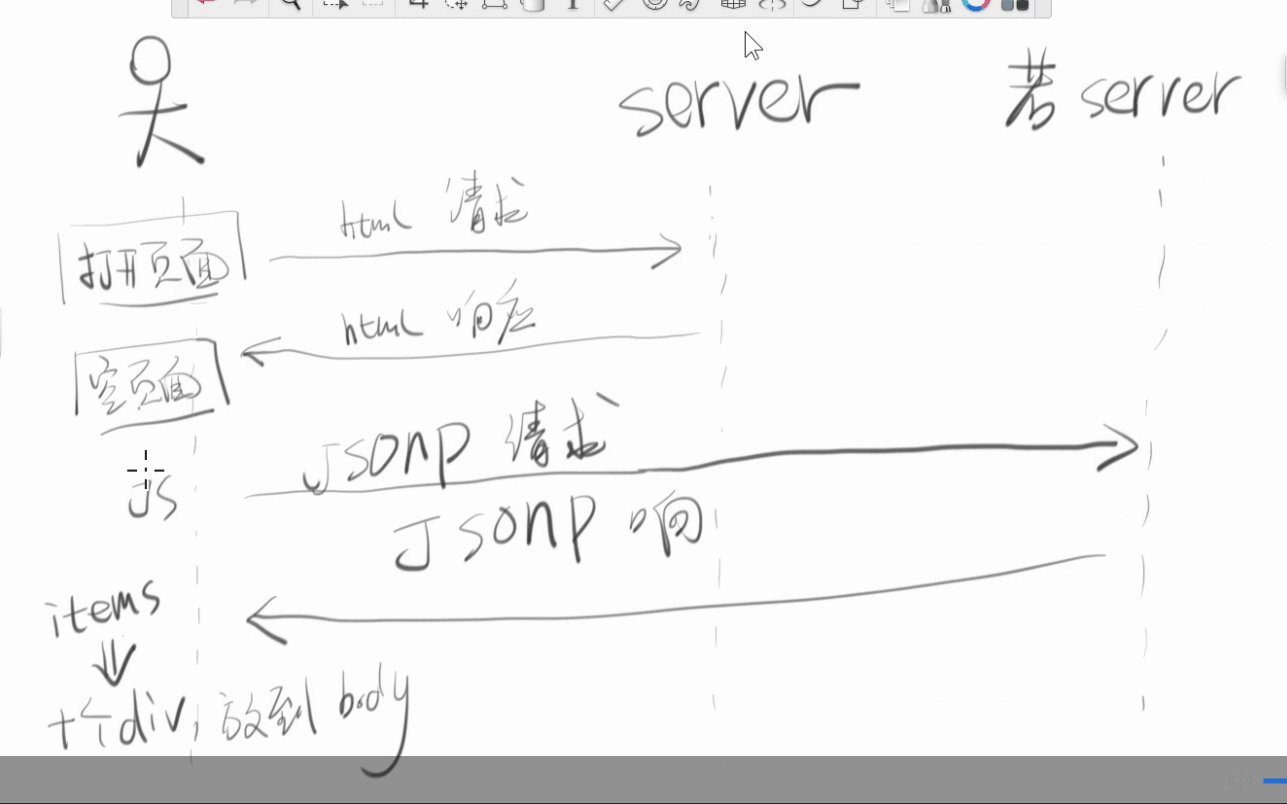 server
若server
html 请求
打开页面
html 响应
空页面
Jsonp 请求
JS
Jsonp 响
items
十个div, 放到 body